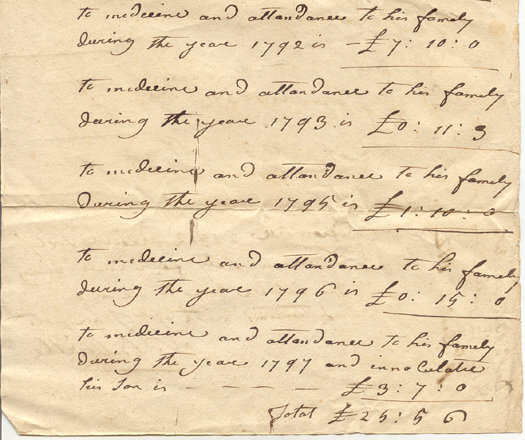 to medicine and attendance to his famely
during the year 1792 is - £ 7 : 10 : 0
to medicine and attandance to his famely
during the year 1793 is £ 0 : 11 : 3
to medicine and attandance to his famely
during the year 1795 is £ 1 : 10 : 0
to medicine and attandance to his famely
during the year 1796 is £ 0 : 15 : 0
to medicine and attandance to his famely
during the year 1797 and ennoculate
his Son is - - - - £ 3 : 7 : 0
Total £ 25 : 5 6